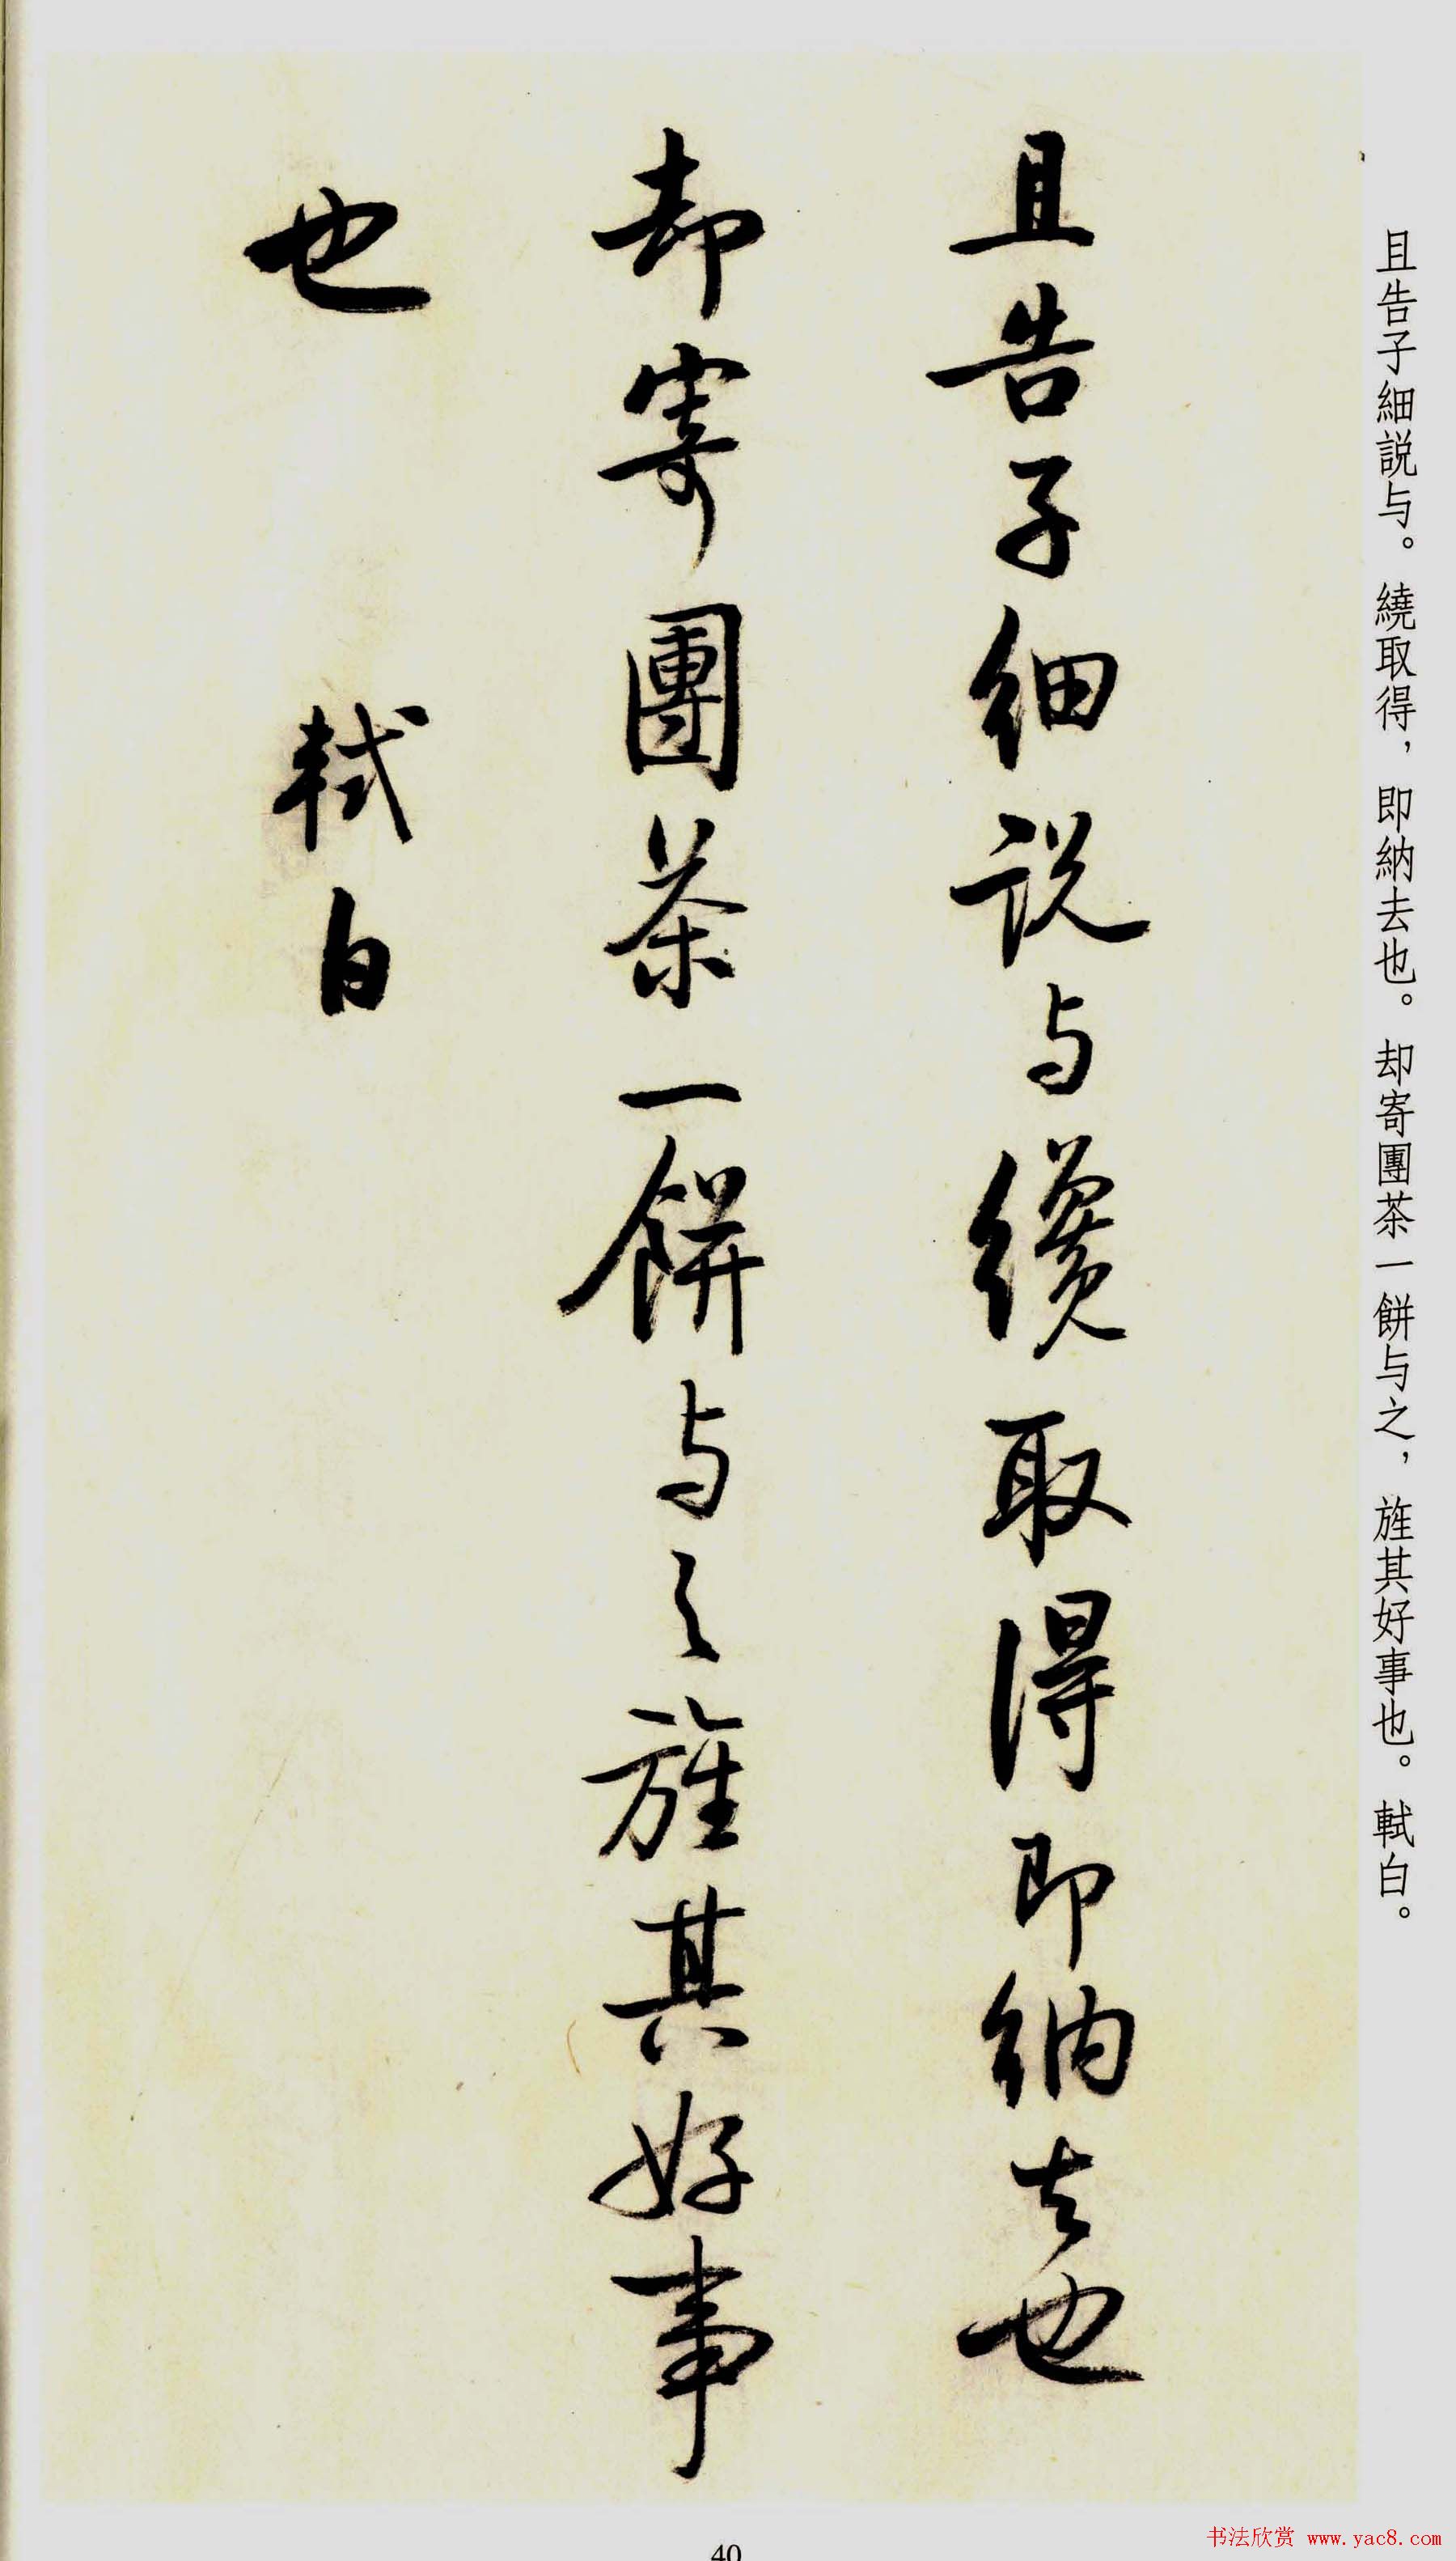 且告子細説与。繞取得，即納去也。却寄團茶一餅与之，旌其好事也。軾白。
且告子細説与纔取得即納去也
却寄團茶一餅与之旌其好事
也 軾白
40
书法欣赏 www.yac8.com